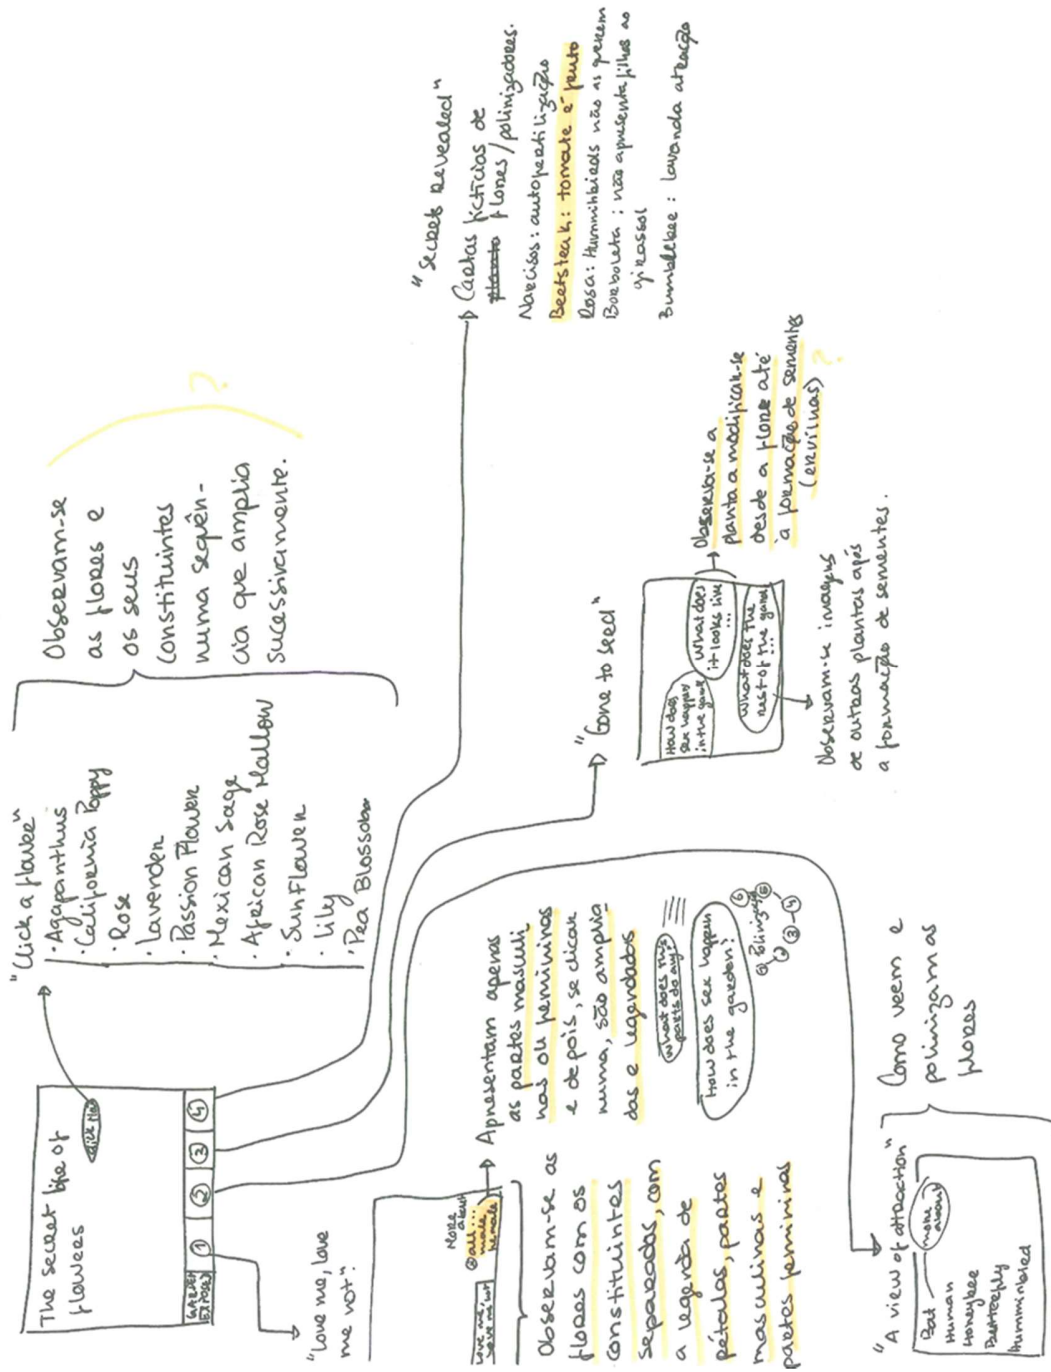 The secret life of
flowers
Click Me
GARDEN
EXPOSED
1
2
3
4
"Click a flower"
· Agapanthus
· California Poppy
· Rose
· Lavender
· Passion Flower
· Mexican Sage
· African Rose Mallow
· Sunflower
· Lily
· Pea Blossom
Observam-se
as flores e
os seus
constituintes
numa sequên-
cia que amplia
sucessivamente.
?
"Love me, love
me not"
Love me,
Love me not
More
about
all...
male
female
Observam-se as
flores com os
constituintes
separados, com
a legenda de
pétalas, partes
masculinas e
partes femininas
Apresentam apenas
as partes masculi-
nas ou femininas
e depois, se clicar
numa, são amplia-
das e legendadas
What does this
parts do any
How does sex happen
in the garden?
Polinização
3
4
5
6
"A view of attraction"
Bat
Human
Honeybee
Butterfly
Hummimbird
more
about
Como veem e
polinizam as
flores
"Gone to seed"
How does
sex happen
in the gard
What does
it looks like
...
What does the
rest of the gard
...
Observa-se a
planta a modificar-se
desde a flore até
à formação de sementes
(ervilhas)
?
Observam-se imagens
de outras plantas após
a formação de sementes.
"Secrets Revealed"
Cartas fictícias de
planta flores/polinizadores.
Narcisos: autofertilização
Beetsteak: tomate é fruto
Rosa: Hummihbirds não as querem
Borboleta: não apresenta filhos ao
girassol
Bumblebee: lavanda atração